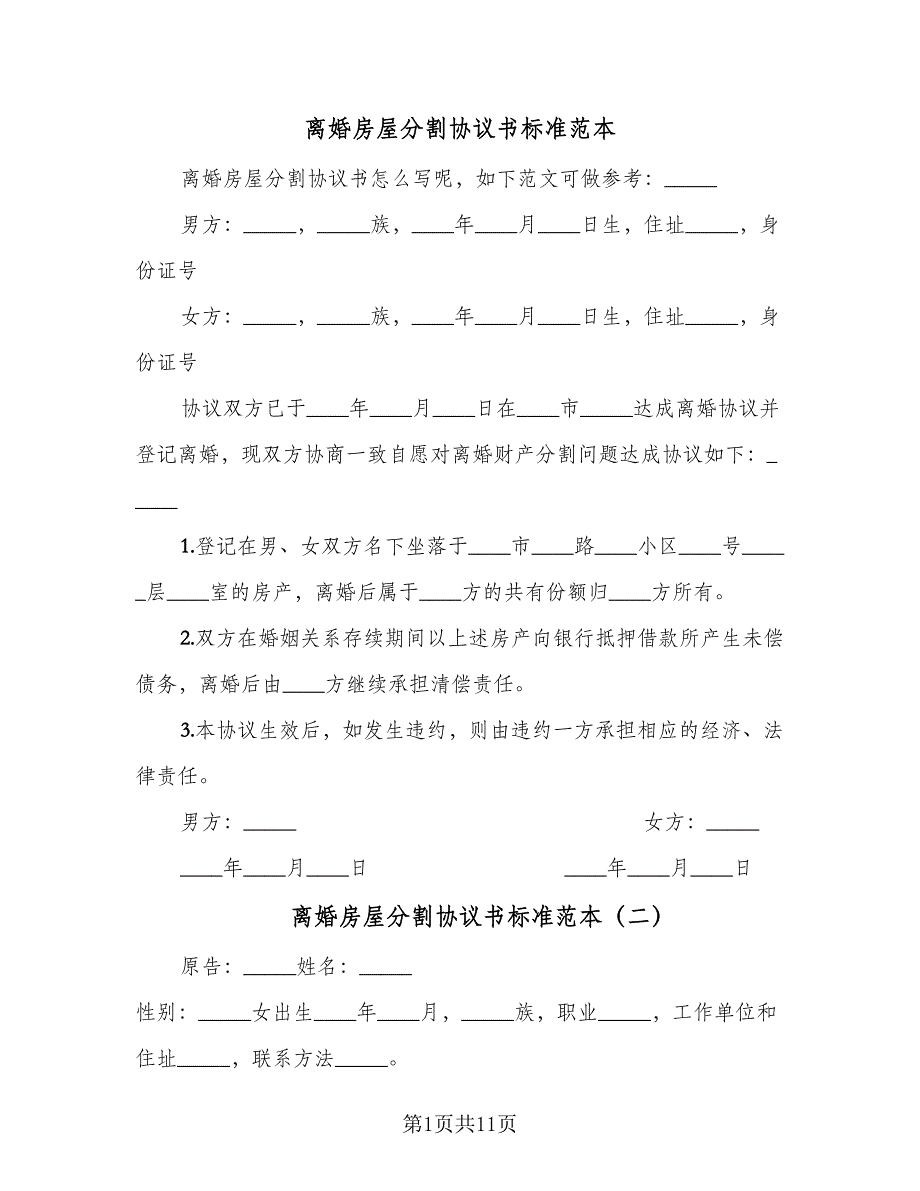 离婚房屋分割协议书标准范本
离婚房屋分割协议书怎么写呢，如下范文可做参考：_____
男方：_____，_____族，____年____月____日生，住址_____，身
份证号
女方：_____，_____族，____年____月____日生，住址_____，身
份证号
协议双方已于____年____月____日在____市_____达成离婚协议并
登记离婚，现双方协商一致自愿对离婚财产分割问题达成协议如下：_
____
1.登记在男、女双方名下坐落于____市____路____小区____号____
_层____室的房产，离婚后属于____方的共有份额归____方所有。
2.双方在婚姻关系存续期间以上述房产向银行抵押借款所产生未偿
债务，离婚后由____方继续承担清偿责任。
3.本协议生效后，如发生违约，则由违约一方承担相应的经济、法
律责任。
男方：_____ 女方：_____
____年____月____日 ____年____月____日
离婚房屋分割协议书标准范本（二）
原告：_____姓名：_____
性别：_____女出生____年____月，_____族，职业_____，工作单位和
住址_____，联系方法_____。
第1页共11页